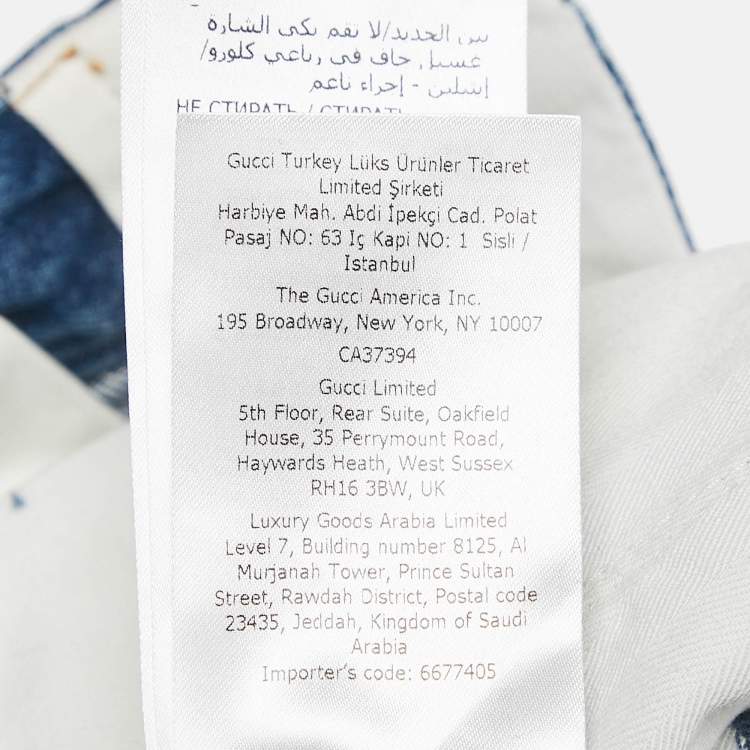 من الحديد/لا تقم بكي الشارة
غسيل جاف في رباعي كلورو/
إيثيلين - إجراء ناعم
НЕ СТИРАТЬ / СТИРАТЬ
Gucci Turkey Lüks Ürünler Ticaret
Limited Şirketi
Harbiye Mah. Abdi İpekçi Cad. Polat
Pasaj NO: 63 Iç Kapi NO: 1 Sisli /
Istanbul
The Gucci America Inc.
195 Broadway, New York, NY 10007
CA37394
Gucci Limited
5th Floor, Rear Suite, Oakfield
House, 35 Perrymount Road,
Haywards Heath, West Sussex
RH16 3BW, UK
Luxury Goods Arabia Limited
Level 7, Building number 8125, Al
Murjanah Tower, Prince Sultan
Street, Rawdah District, Postal code
23435, Jeddah, Kingdom of Saudi
Arabia
Importer's code: 6677405